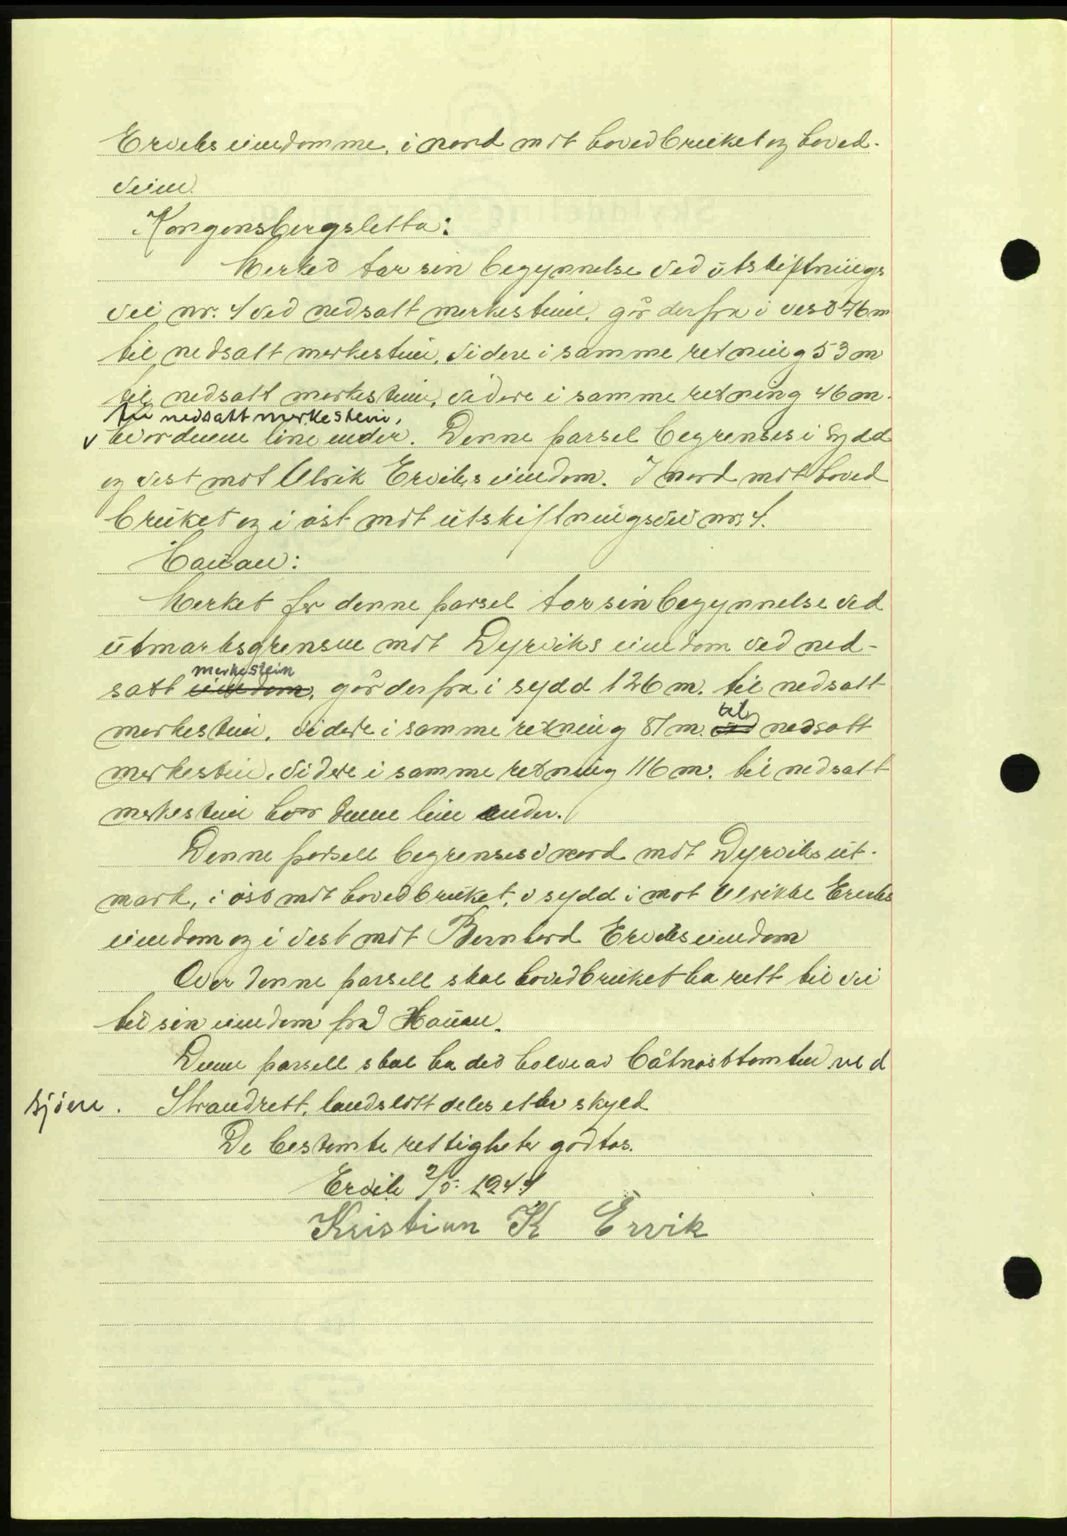 Erviks eiendomme, i nord mot hovedbruket og hoved-
veien.
Kongensbergsletta:
Merket tar sin begynnelse ved utskiftnings
vei nr. 4 ved nedsatt merkestein, går derfra i vest 76 m
til nedsatt merkestein, videre i samme retning 53 m
til nedsatt merkestein, videre i samme retning 46 m.
til nedsatt merkestein,
hvor denne line ender. Denne parsel begrenses i sydd
og vest mot Ulrik Erviks eiendom. I nord mot hoved
bruket og i øst mot utskiftningsvei nr. 4.
Hauan:
Merket for denne parsel tar sin begynnelse ved
utmarksgrensen mot Dyrviks eiendom ved ned-
satt merkestein, går derfra i sydd 126 m. til nedsatt
merkestein, videre i samme retning 87 m. til nedsatt
merkestein, videre i samme retning 116 m. til nedsatt
merkestein hvor denne line ender.
Denne parsell begrenses i nord mot Dyrviks ut-
mark, i øst mot hovedbruket, i sydd i mot Ulrikke Erviks
eiendom og i vest mot Erviks eiendom
Over denne parsell skal hovedbruket ha rett til vei
til sin eiendom fra Hauan.
Denne parsell skal ha det halve av båtnøsttomten ved
sjøen. Strandrett, landslott deles etter skyld
De bestemte rettigheter godtas.
Ervik 2/5. 1944
Kristian K Ervik